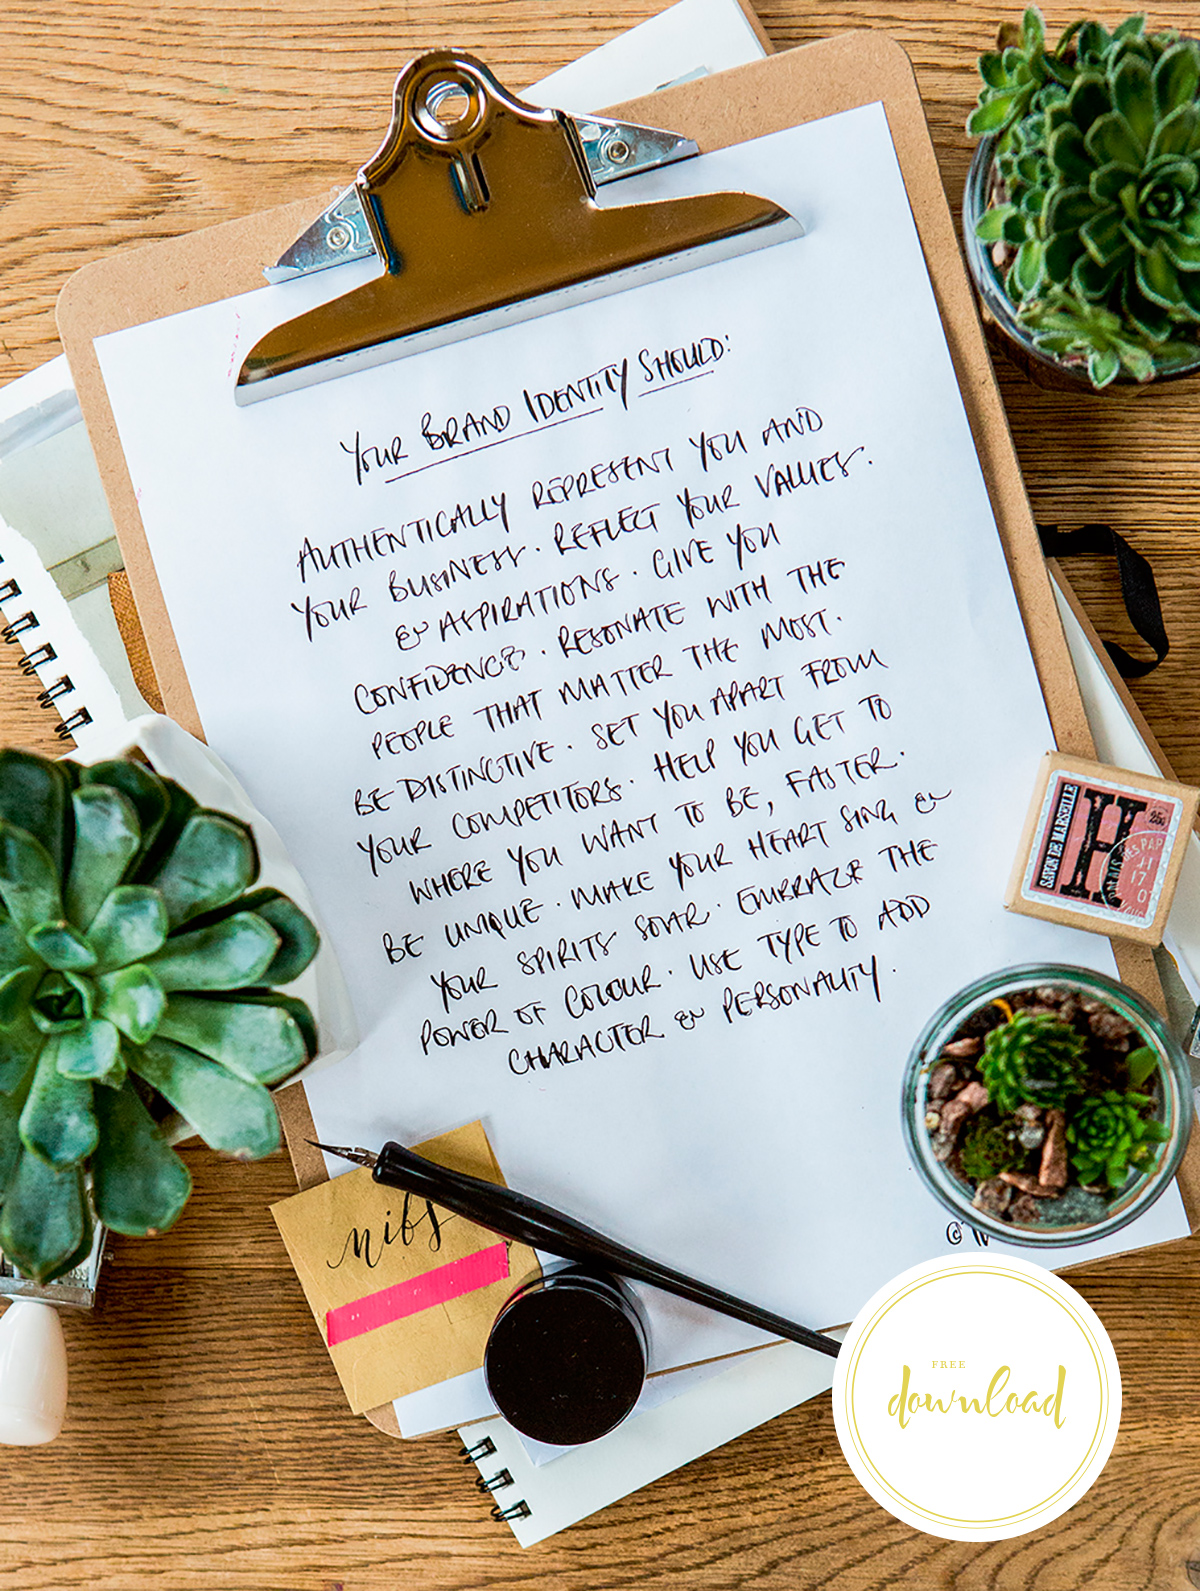 YOUR BRAND IDENTITY SHOULD:
AUTHENTICALLY REPRESENT YOU AND
YOUR BUSINESS. REFLECT YOUR VALUES.
& ASPIRATIONS. GIVE YOU
CONFIDENCE. RESONATE WITH THE
PEOPLE THAT MATTER THE MOST.
BE DISTINCTIVE. SET YOU APART FROM
YOUR COMPETITORS. HELP YOU GET TO
WHERE YOU WANT TO BE, FASTER.
BE UNIQUE. MAKE YOUR HEART SING &
YOUR SPIRITS SOAR. EMBRACE THE
POWER OF COLOUR. USE TYPE TO ADD
CHARACTER & PERSONALITY.
SAVON DE MARSEILLE
H
25c
17
©
nibs
FREE
download